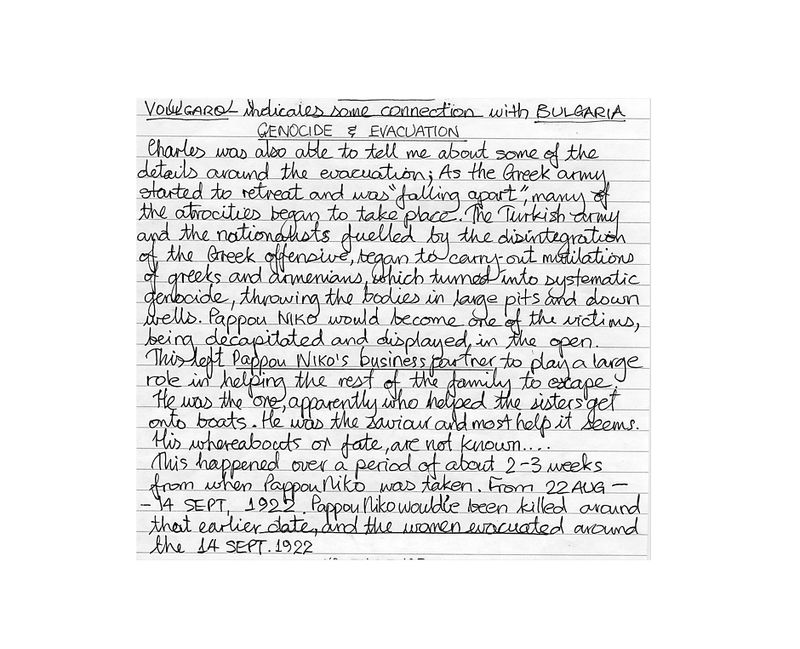 VOULGAROL indicates some connection with BULGARIA
GENOCIDE & EVACUATION
Charles was also able to tell me about some of the
details around the evacuation; As the Greek army
started to retreat and was "falling apart", many of
the atrocities began to take place. The Turkish army
and the nationalists fuelled by the disintegration
of the Greek offensive, began to carry-out mutilations
of greeks and armenians, which turned into systematic
genocide, throwing the bodies in large pits and down
wells. Pappou NIKO would become one of the victims,
being decapitated and displayed, in the open.
This left Pappou Niko's business partner to play a large
role in helping the rest of the family to escape;
He was the one, apparently who helped the sisters get
onto boats. He was the saviour and most help it seems.
His whereabouts or fate, are not known....
This happened over a period of about 2-3 weeks
from when Pappou Niko was taken. From 22 AUG —
- 14 SEPT, 1922. Pappou Niko would've been killed around
that earlier date, and the women evacuated around
the 14 SEPT. 1922